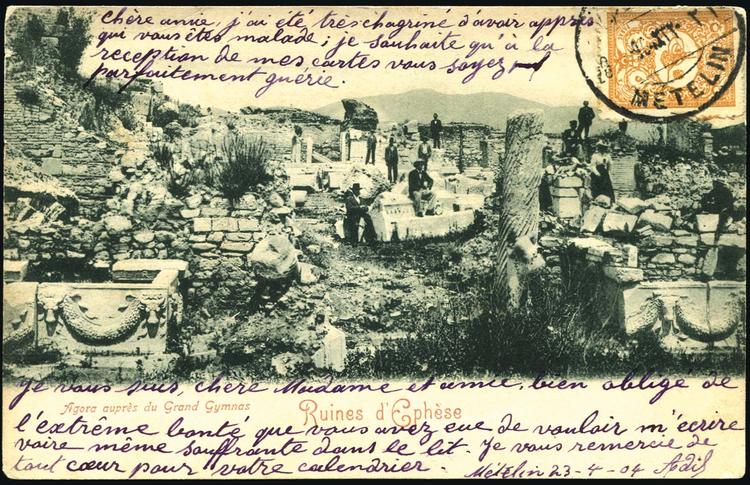 Chère amie, j'ai été très chagriné d'avoir appris
qui vous êtes malade; je souhaite qu'à la
reception de mes cartes vous soyez
parfaitement guérie.
METELIN
Je vous suis, chère Madame et amie, bien obligé de
Agora auprès du Grand Gymnas
Ruines d'Ephèse
l'extrême bonté que vous avez eue de vouloir m'écrire
voire même souffrante dans le lit. Je vous remercie de
tout cœur pour votre calendrier.
Mételin 23-4-04 Adil